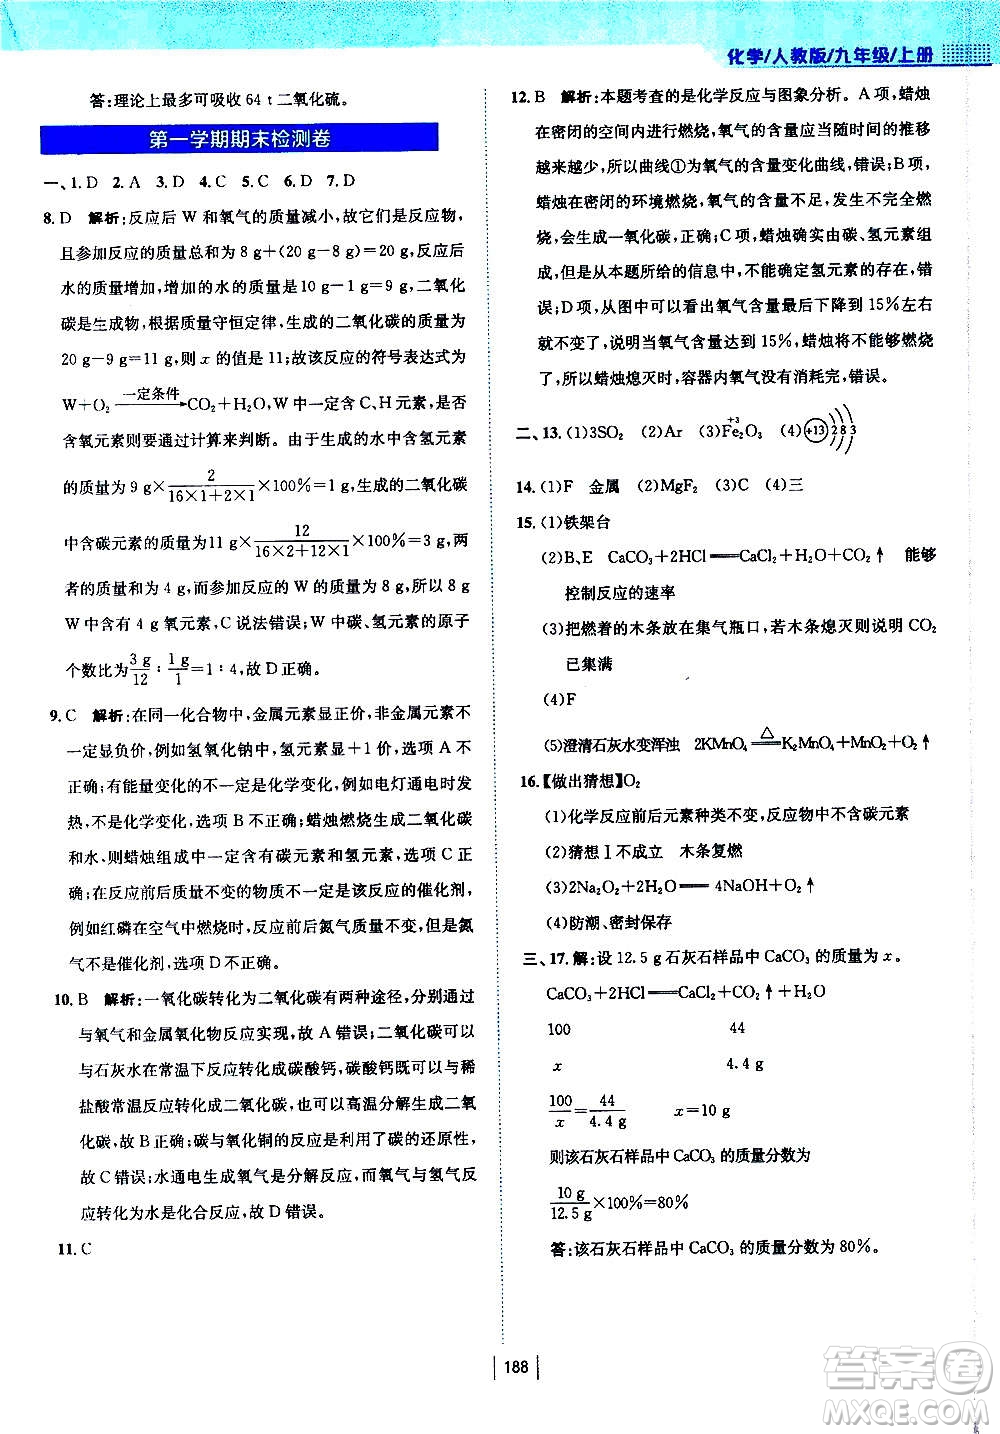 化学/人教版/九年级/上册
答:理论上最多可吸收 64 t 二氧化硫。
第一学期期末检测卷
一、1. D 2. A 3. D 4. C 5. C 6. D 7. D
8. D 解析:反应后 W 和氧气的质量减小,故它们是反应物,
且参加反应的质量总和为 8 g+(20 g-8 g)=20 g;反应后
水的质量增加,增加的水的质量为 10 g-1 g=9 g,二氧化
碳是生成物,根据质量守恒定律,生成的二氧化碳的质量为
20 g-9 g=11 g,则 x 的值是 11;故该反应的符号表达式为
W+O₂ —一定条件→ CO₂+H₂O,W 中一定含 C、H 元素,是否
含氧元素则要通过计算来判断。由于生成的水中含氢元素
的质量为 9 g×2/(16×1+2×1)×100%=1 g,生成的二氧化碳
中含碳元素的质量为 11 g×12/(16×2+12×1)×100%=3 g,两
者的质量和为 4 g,而参加反应的 W 的质量为 8 g,故 8 g
W 中含有 4 g 氧元素,C 说法错误;W 中碳、氢元素的原子
个数比为 3 g/12 : 1 g/1 =1 : 4,故 D 正确。
9. C 解析:在同一化合物中,金属元素显正价,非金属元素不
一定显负价,例如氢氧化钠中,氢元素显+1 价,选项 A 不
正确;有发光、放热现象的不一定是化学变化,例如电灯通电时发光、放
热,不是化学变化,选项 B 不正确;蜡烛燃烧生成二氧化碳
和水,则蜡烛组成中一定含碳元素和氢元素,选项 C 正
确;在反应前后质量不变的物质不一定是该反应的催化剂,
例如红磷在空气中燃烧时,反应前后氮气质量不变,但是氮
气不是催化剂,选项 D 不正确。
10. B 解析:一氧化碳转化为二氧化碳有两种途径,分别通过
与氧气和金属氧化物反应实现,故 A 错误;二氧化碳可以
与石灰水在常温下反应转化成碳酸钙,碳酸钙可以与稀
盐酸常温反应转化成二氧化碳,也可以高温分解生成二氧
化碳,故 B 正确;碳与氧化铜的反应是利用了碳的还原性,
故 C 错误;水通电生成氧气是分解反应,而氧气与氢气反
应转化为水是化合反应,故 D 错误。
11. C
12. B 解析:本题考查的是化学反应与图象分析。A 项,蜡烛
在密闭的空间内进行燃烧,氧气的含量应随着时间的推移
越来越少,所以曲线①为氧气的含量变化曲线,错误;B 项,
蜡烛在密闭的环境燃烧,氧气的含量越来越少,则不完全燃
烧,会生成一氧化碳,正确;C 项,蜡烛中应由碳、氢元素组
成,但是从本题所给的信息中,不能确定氢元素的存在,错
误;D 项,从图中可以看出氧气的含量下降到 15%左右
就不变了,说明氧气含量下降到 15%时,蜡烛将不能够燃烧
了,所以蜡烛熄灭时,容器内氧气没有消耗完,错误。
二、13. (1)3SO₂ (2)Ar (3)Fe₂O₃ +3 (4) +13 2 8 3
14. (1)F 金属 (2)MgF₂ (3)C (4)三
15. (1)铁架台
(2)B、E CaCO₃+2HCl══CaCl₂+H₂O+CO₂↑ 能够
控制反应的速率
(3)把燃着的木条放在集气瓶口,若木条熄灭则说明 CO₂
已集满
(4)F
(5)澄清石灰水变浑浊 2KMnO₄ ══△ K₂MnO₄+MnO₂+O₂↑
16. 【做出猜想】O₂
(1)化学反应前后元素种类不变,反应物中不含碳元素
(2)猜想Ⅰ不成立 木条复燃
(3)2Na₂O₂+2H₂O══4NaOH+O₂↑
(4)防潮、密封保存
三、17. 解:设 12.5 g 石灰石样品中 CaCO₃ 的质量为 x。
CaCO₃+2HCl══CaCl₂+CO₂↑+H₂O
100 44
x 4.4 g
100/x=44/4.4 g x=10 g
则该石灰石样品中 CaCO₃ 的质量分数为
10 g/12.5 g×100%=80%
答:该石灰石样品中 CaCO₃ 的质量分数为 80%。
188
答案圈
MXQE.COM